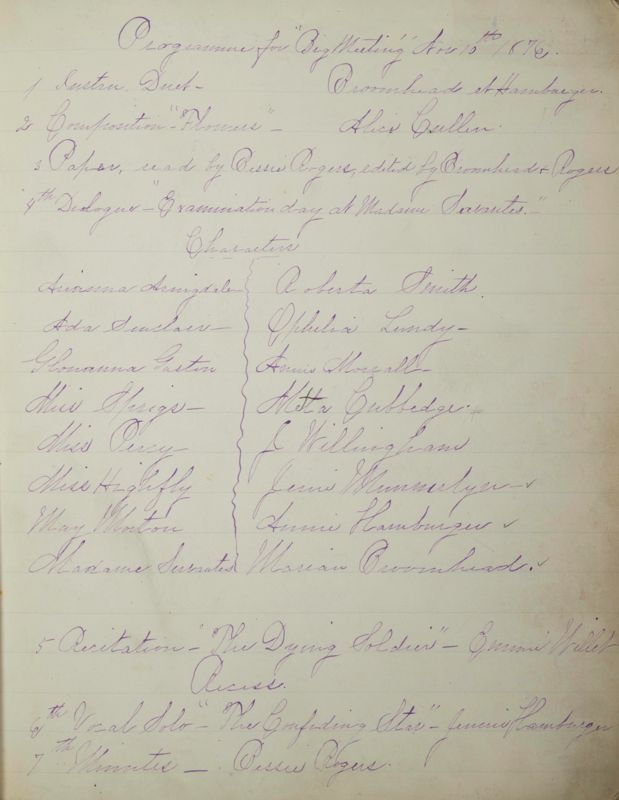 Programme for "Big Meeting" Nov 10th 1876.
1 Instru. Duet - Broomhead et Hamburger.
2 Composition - "Flowers" - Alice Cullen.
3 Paper, read by Bessie Rogers, edited by Broomhead & Rogers
4th Dialogue - "Examination day at Madame Savantes."
Characters
Arianna Roberta Smith
Ada Sinclair - Ophelia Lundy -
Giovanna Gaston Annie Morcall -
Miss Sprigs - Meta Cubbedge.
Miss Percy - J Willingham
Miss Highfly Jenie Munnerlyn - ✓
May Morton Annie Hamburger ✓
Madame Savantes Marian Broomhead. ✓
5 Recitation - "The Dying Soldier" - Emmie Willet
Recess.
6th Vocal Solo - "The Confiding Star" - Jennie Hamburger
7th Minutes - Bessie Rogers.